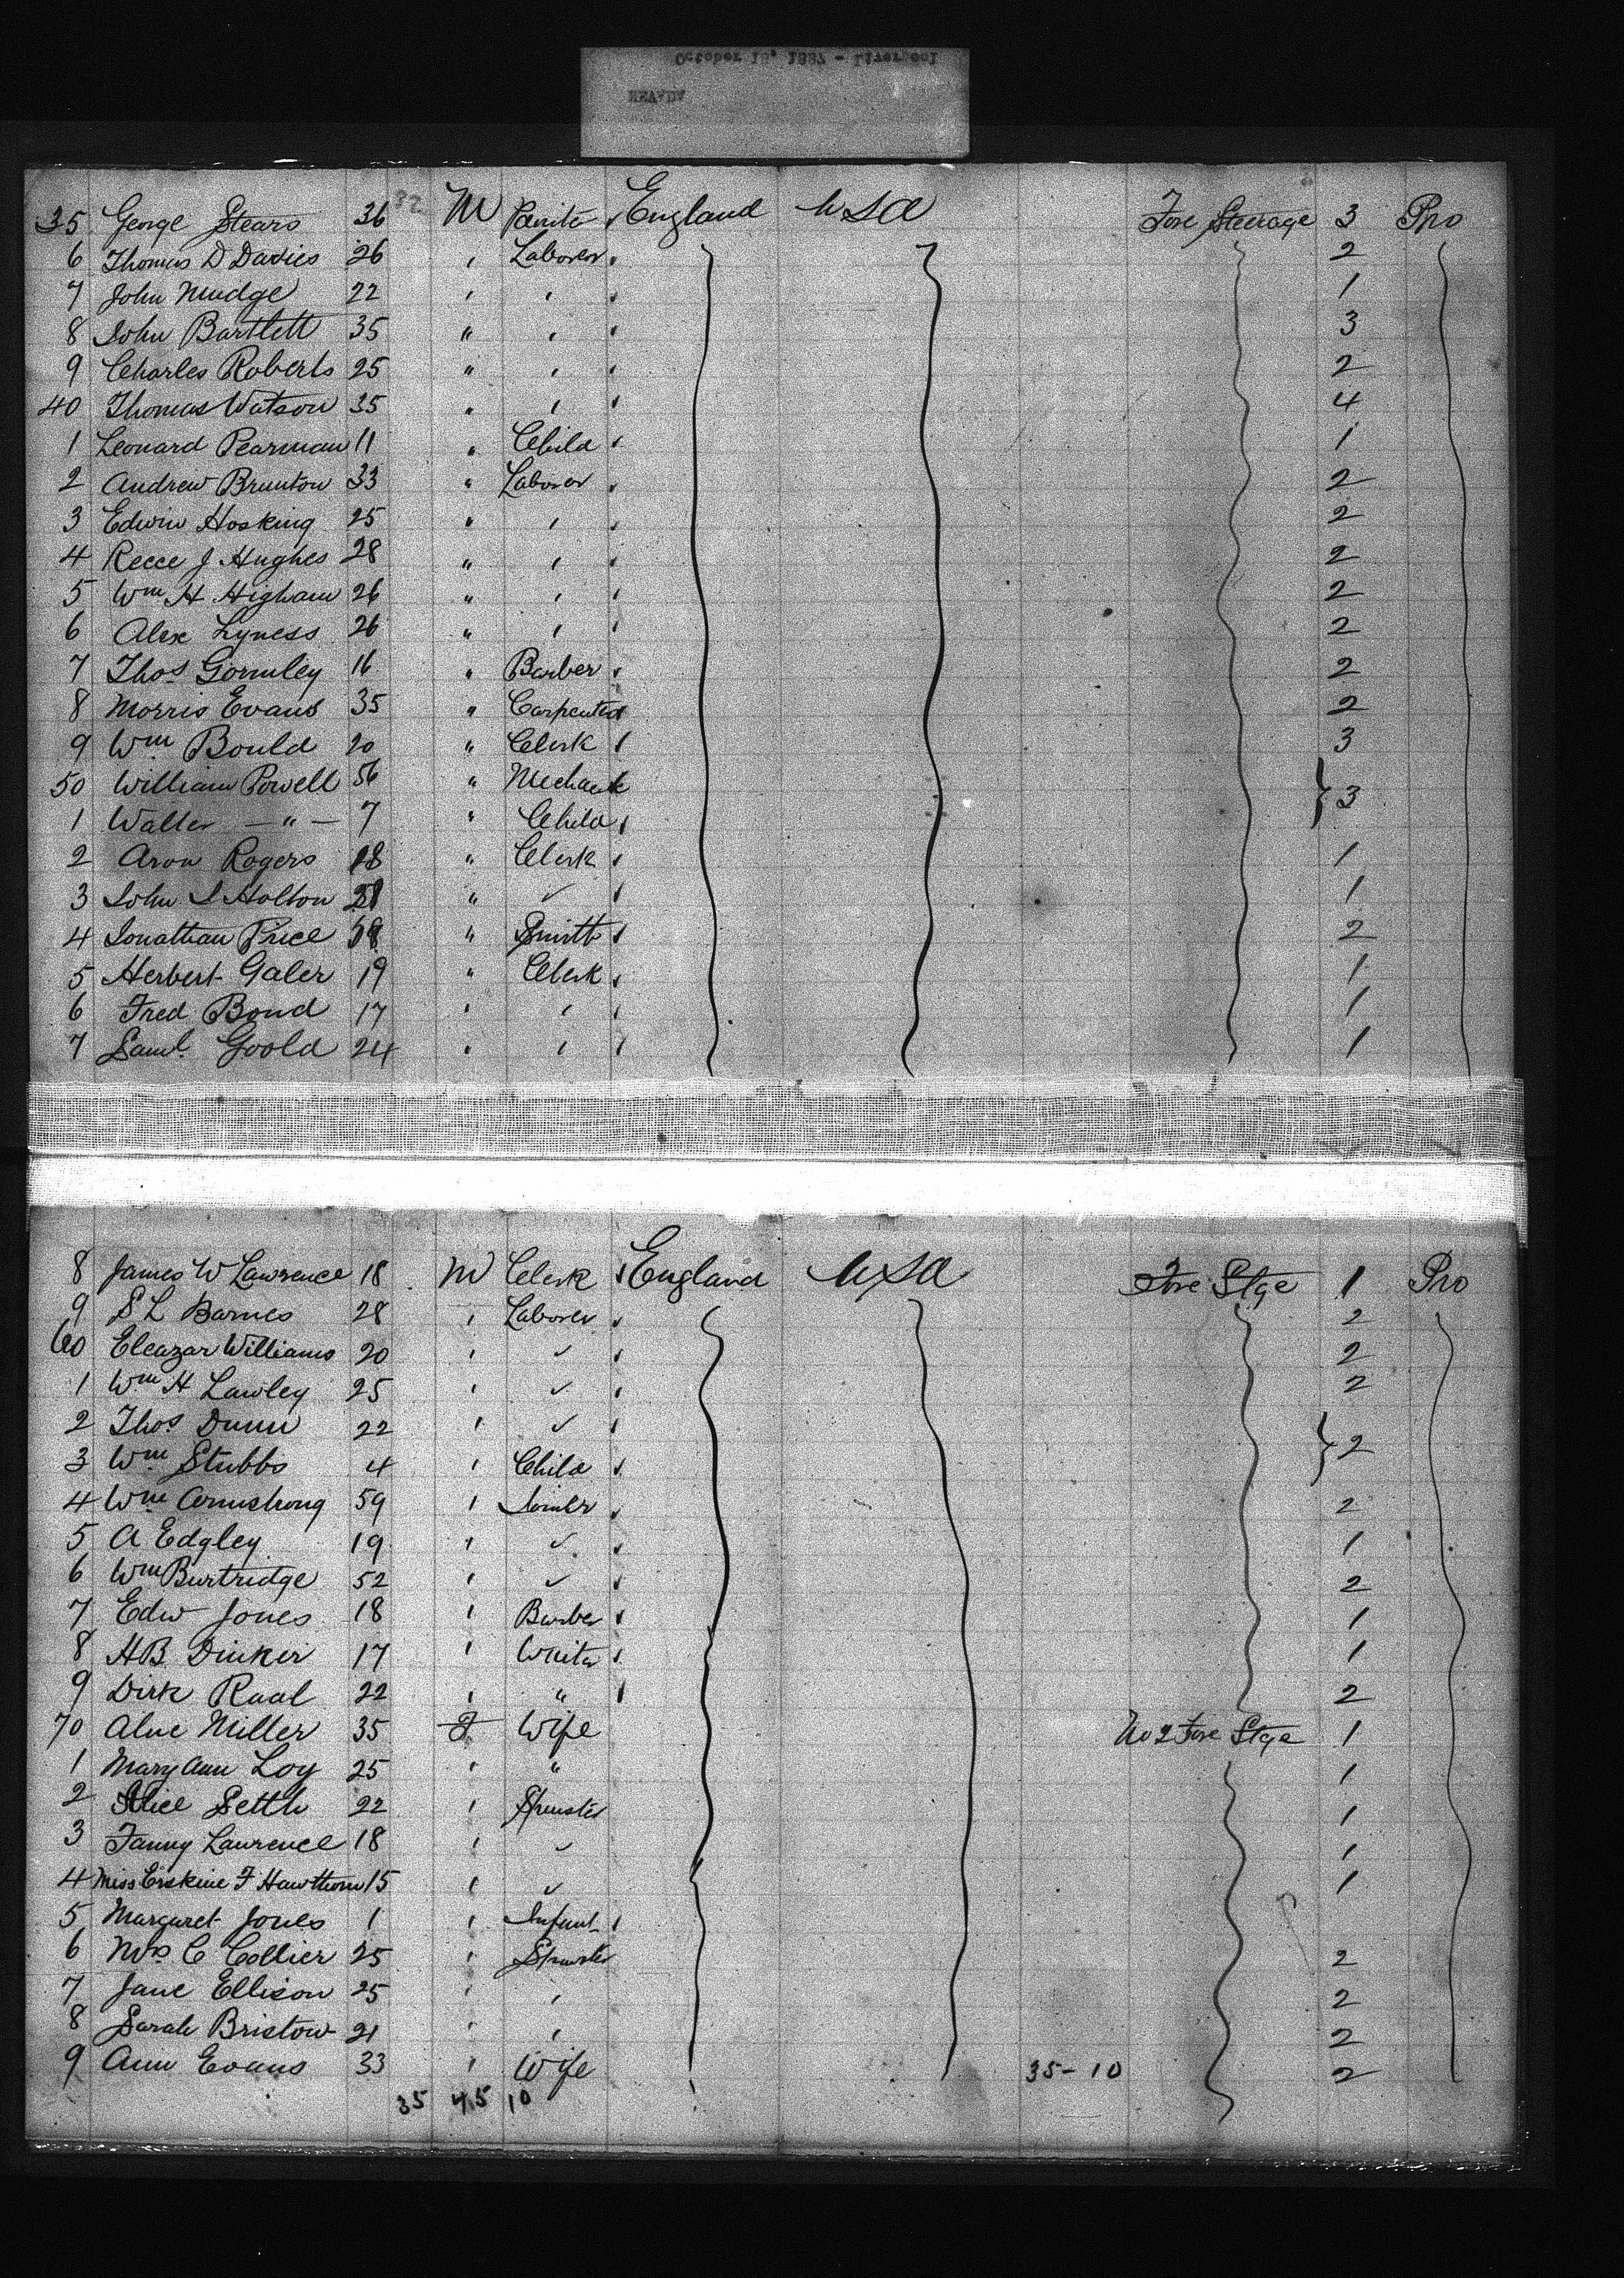 October 18, 1887 - Liverpool
NEVADA
35 George Stears 36 M England USA Fore Steerage 3 Pro
6 Thomas D Davies 26 " Laborer 2
7 John Mudge 22 " " 1
8 John Bartlett 35 " " 3
9 Charles Roberts 25 " " 2
40 Thomas Watson 35 " " 4
1 Leonard Pearman 11 " Child 1
2 Andrew Brunton 33 " Laborer 2
3 Edwin Hosking 25 " " 2
4 Reece J Hughes 28 " " 2
5 Wm H Higham 26 " " 2
6 Alex Lyness 26 " " 2
7 Thos Gormley 16 " Barber 2
8 Morris Evans 35 " Carpenter 2
9 Wm Bould 20 " Clerk 3
50 William Powell 56 " Mechanic } 3
1 Walter — " — 7 " Child
2 Aron Rogers 18 " Clerk 1
3 John S Holton " " 1
4 Jonathan Price " Smith 2
5 Herbert Galer 19 " Clerk 1
6 Fred Bond 17 " " 1
7 Saml Goold 24 " " 1
8 James W Lawrence 18 M Clerk England USA Fore Stge 1 Pro
9 S L Barnes 28 " Laborer 2
60 Eleazar Williams 20 " " 2
1 Wm H Lawley 25 " " 2
2 Thos Dunn 22 " " } 2
3 Wm Stubbs 4 " Child
4 Wm Armstrong 59 " Joiner 2
5 A Edgley 19 " " 1
6 Wm Burtridge 52 " " 2
7 Edw Jones 18 " Barber 1
8 H B Dinker 17 " Waiter 1
9 Dirk Raal 22 " " 2
70 Miller 35 F Wife No 2 Fore Stge 1
1 Mary Ann Loy 25 " " 1
2 Alice Settle 22 " Spinster 1
3 Fanny Lawrence 18 " " 1
4 Miss Erskine F Hawthorn 15 " " 1
5 Margaret Jones 1 " Infant
6 Mrs C Collier 25 " Spinster 2
7 Jane Ellison 25 " " 2
8 Sarah Bristow 21 " " 2
9 Ann Evans 33 " Wife 35-10 2
35 45 10